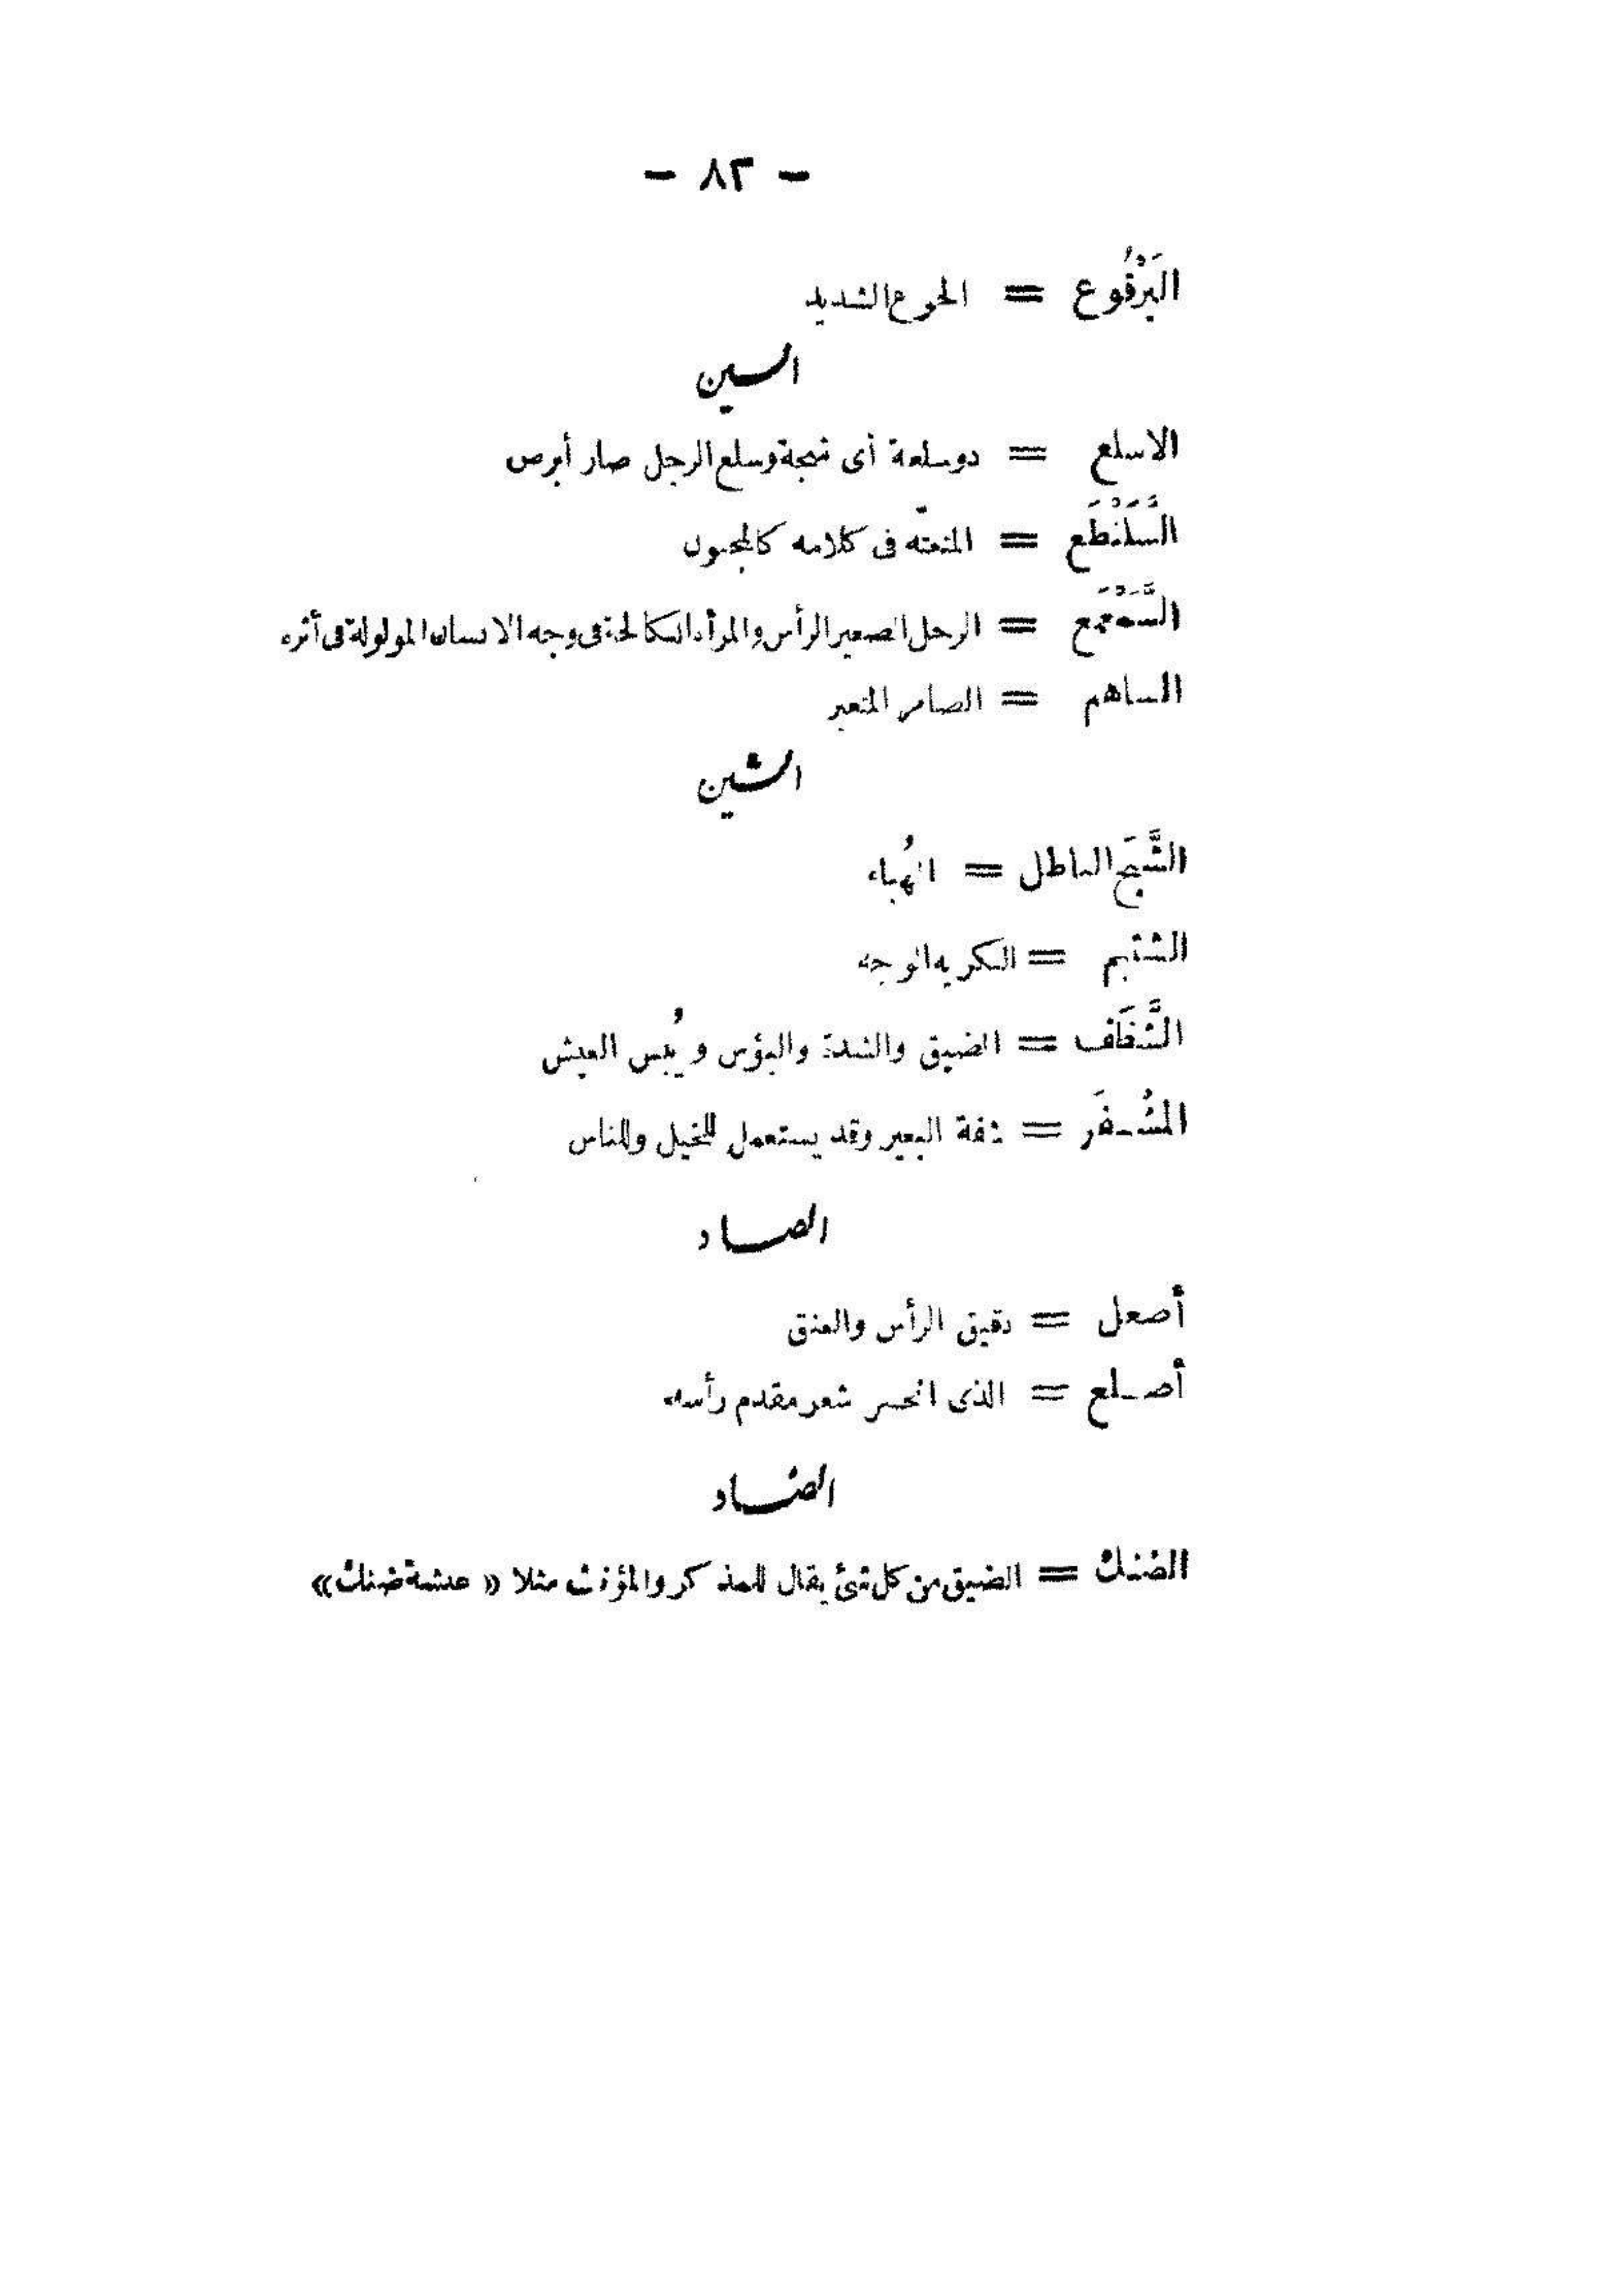 - ٨٣ -
اليَرْقُوع = الجوع الشديد
السين
الاسلع = ذو سلعة أى شجة وسلع الرجل صار أبرص
السَّلَنْطَع = المتعتّه فى كلامه كالمجنون
السَّمَعْمَع = الرجل الصغير الرأس والمرأة الكالحة فى وجه الانسان المولولة فى أثره
الساهم = الضامر المتغير
الشين
الشَّبَح الباطل = الهُباء
الشتيم = الكريه الوجه
الشَّظَف = الضيق والشدة والبؤس و يُبس العيش
المشُـفَر = شفة البعير وقد يستعمل للخيل وللناس
الصاد
أصعل = دقيق الرأس والعنق
أصـلع = الذى انحسر شعر مقدم رأسه
الضاد
الضنك = الضيق من كل شئ يقال للمذكر والمؤنث مثلا « عيشة ضنك »